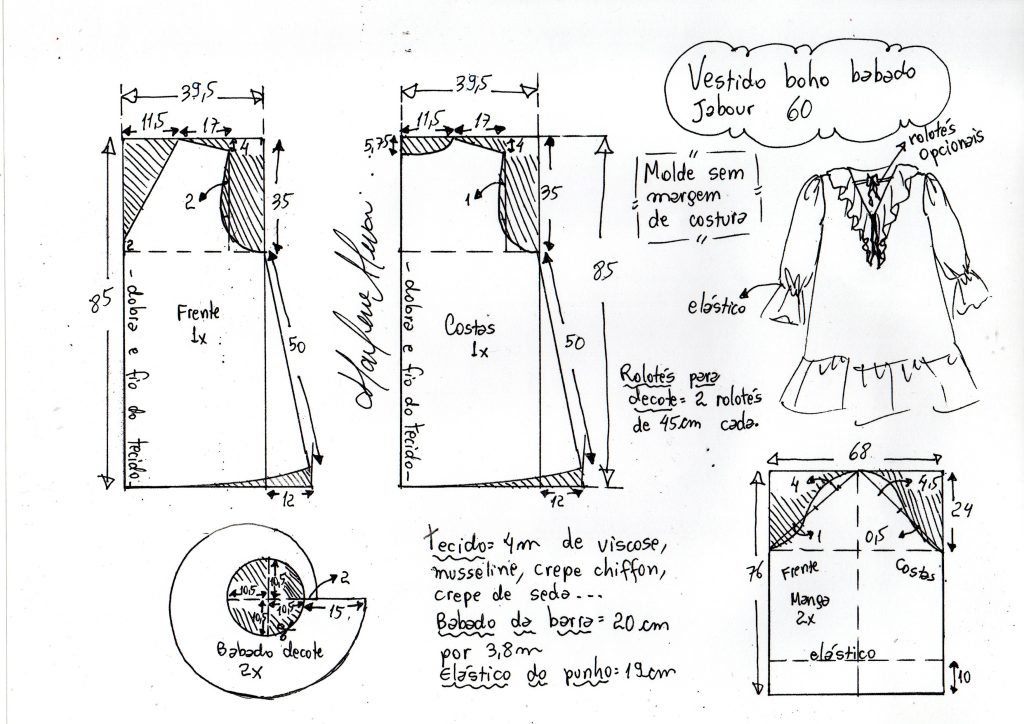 Vestido boho babado
Jabour 60
rolotés
opcionais
Molde sem
margem
de costura
elástico
Rolotés para
decote = 2 rolotés
de 45cm cada.
39,5
11,5
17
4
2
35
2
85
Frente
1x
50
- dobra e fio do tecido -
12
Marlene Mukai
39,5
11,5
17
5,75
4
1
35
85
Costas
1x
50
- dobra e fio do tecido -
12
10,5
10,5
10,5
10,5
2
15
Babado decote
2x
tecido = 4m de viscose,
musseline, crepe chiffon,
crepe de seda...
Babado da barra = 20cm
por 3,8m
Elástico do punho = 19cm
68
4
4,5
24
1
0,5
76
Frente
Costas
Manga
2x
elástico
10